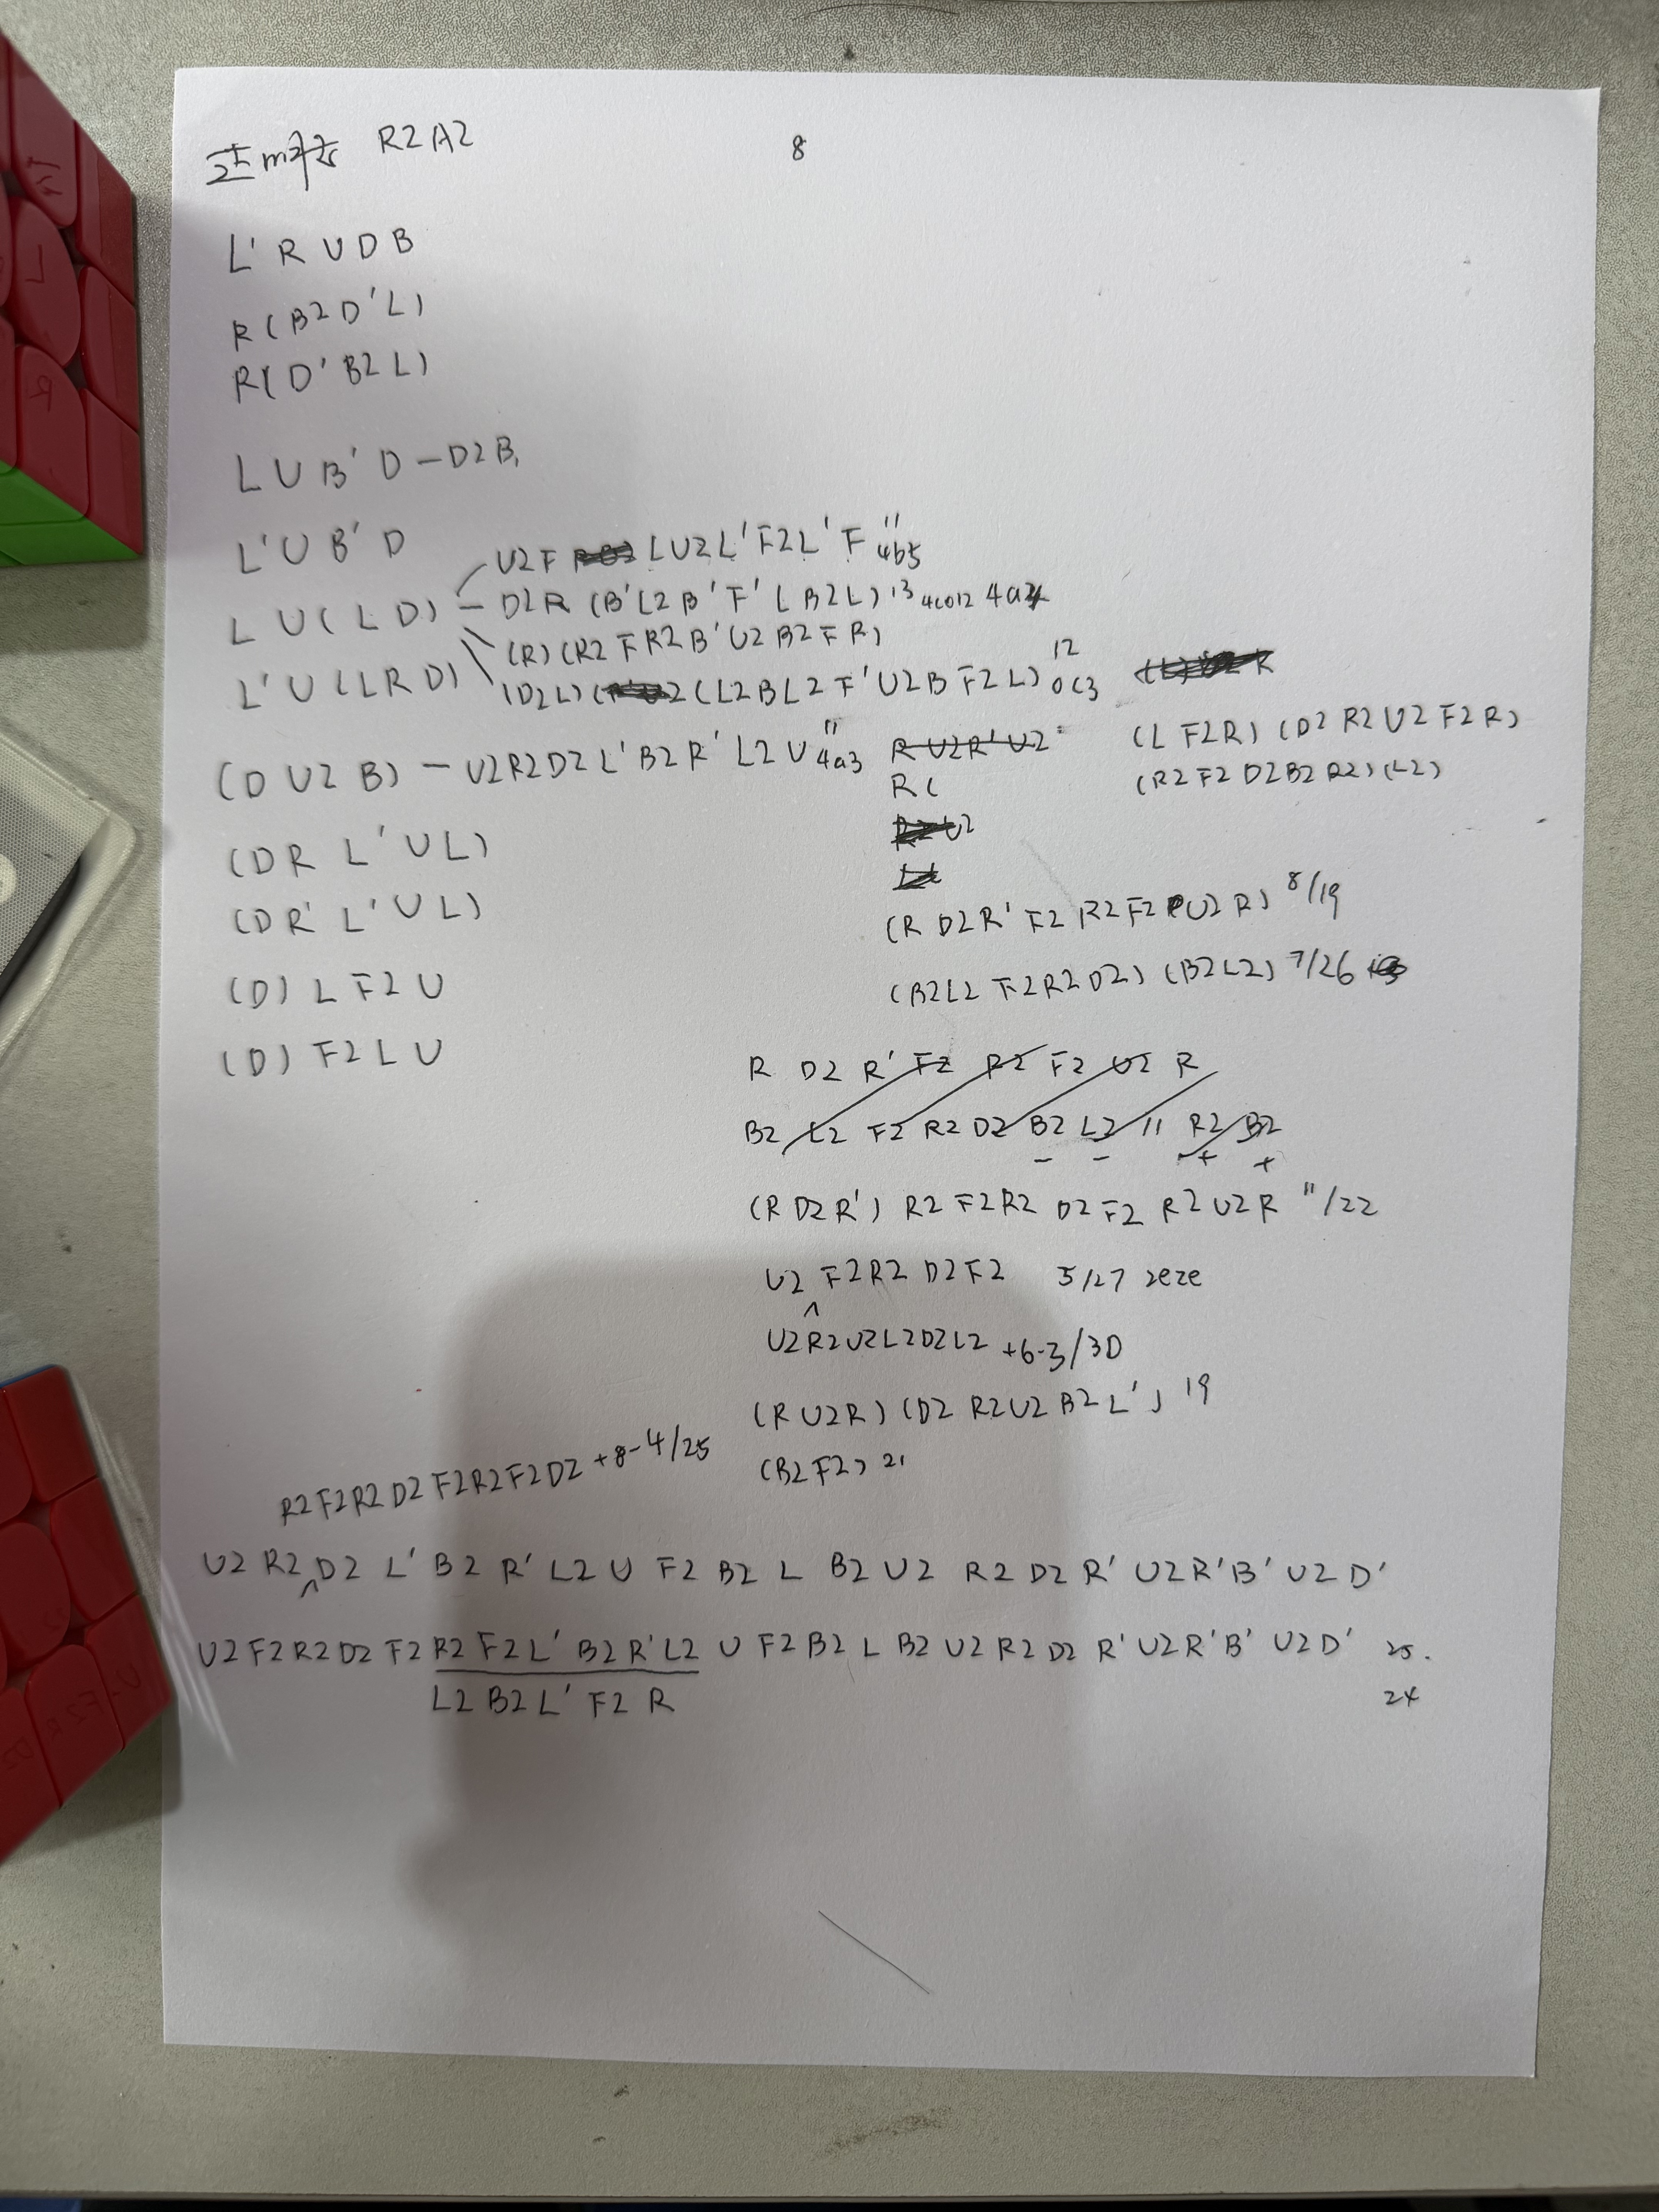 R2A2
8
L' R U D B
R (B2 D' L)
R (D' B2 L)
L U B' D - D2 B,
L' U B' D
U2 F L U2 L' F2 L' F 11 4b5
L U (L D) - D2 R (B' L2 B' F' L B2 L) 13 4c012 4a
(R) (R2 F R2 B' U2 B2 F R)
L' U (L R D) (D2 L) ( 2 (L2 B L2 F' U2 B F2 L) 12 0c3
(D U2 B) - U2 R2 D2 L' B2 R' L2 U 11 4a3
R U2 R' U2
R (
(L F2 R) (D2 R2 U2 F2 R)
(R2 F2 D2 B2 R2) (L2)
(D R L' U L)
(D R' L' U L)
(D) L F2 U
(D) F2 L U
(R D2 R' F2 R2 F2 U2 R) 8/19
(B2 L2 F2 R2 D2) (B2 L2) 7/26
R D2 R' F2 R2 F2 U2 R
B2 L2 F2 R2 D2 B2 L2 11 R2 B2
- - + +
(R D2 R') R2 F2 R2 D2 F2 R2 U2 R 11/22
U2 F2 R2 D2 F2 5/27 2e2e
^
U2 R2 U2 L2 D2 L2 +6-3/30
(R U2 R) (D2 R2 U2 B2 L') 19
(B2 F2) 21
R2 F2 R2 D2 F2 R2 F2 D2 +8-4/25
U2 R2 ^ D2 L' B2 R' L2 U F2 B2 L B2 U2 R2 D2 R' U2 R' B' U2 D'
U2 F2 R2 D2 F2 R2 F2 L' B2 R' L2 U F2 B2 L B2 U2 R2 D2 R' U2 R' B' U2 D' 25.
L2 B2 L' F2 R 24